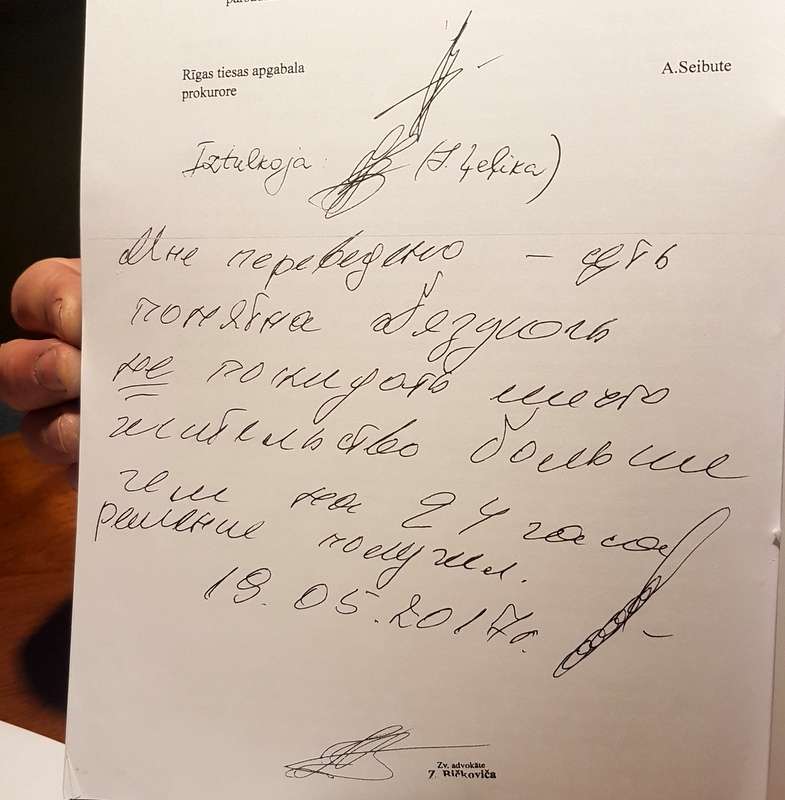 Rīgas tiesas apgabala
prokurore
A.Seibute
Iztulkoja:
Мне переведено – суть
понятна обязуюсь
не покидать место
жительство больше
чем на 24 часа
решение получил.
19.05.2017г.
Zv. advokāte